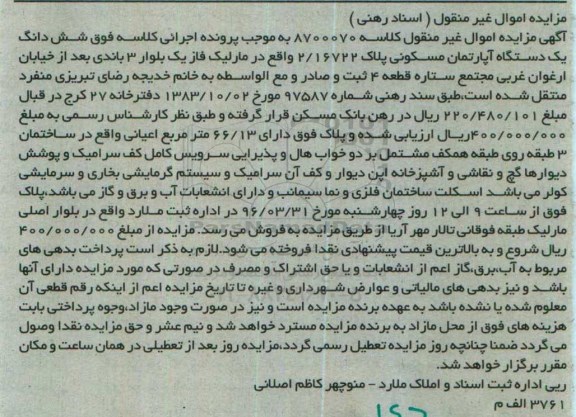 مزایده اموال غیر منقول ( اسناد رهنی )
آگهی مزایده اموال غیر منقول کلاسه ۸۷۰۰۰۷۰ به موجب پرونده اجرائی کلاسه فوق شش دانگ
یک دستگاه آپارتمان مسکونی پلاک ۲/۱۶۷۲۲ واقع در مارلیک فاز یک بلوار ۳ باندی بعد از خیابان
ارغوان غربی مجتمع ستاره قطعه ۴ ثبت و صادر و مع الواسطه به خانم خدیجه رضای تبریزی منفرد
منتقل شده است،طبق سند رهنی شماره ۹۷۵۸۷ مورخ ۱۳۸۳/۱۰/۰۲ دفترخانه ۲۷ کرج در قبال
مبلغ ۲۲۰/۴۸۰/۱۰۱ ریال در رهن بانک مسکن قرار گرفته و طبق نظر کارشناس رسمی به مبلغ
۴۰۰/۰۰۰/۰۰۰ریال ارزیابی شده و پلاک فوق دارای ۶۶/۱۳ متر مربع اعیانی واقع در ساختمان
۳ طبقه روی طبقه همکف مشتمل بر دو خواب هال و پذیرایی سرویس کامل کف سرامیک و پوشش
دیوارها گچ و نقاشی و آشپزخانه اپن دیوار و کف آن سرامیک و سیستم گرمایشی بخاری و سرمایشی
کولر می باشد اسکلت ساختمان فلزی و نما سیمانب و دارای انشعابات آب و برق و گاز می باشد،پلاک
فوق از ساعت ۹ الی ۱۲ روز چهارشنبه مورخ ۹۶/۰۳/۳۱ در اداره ثبت ملارد واقع در بلوار اصلی
مارلیک طبقه فوقانی تالار مهر آریا از طریق مزایده به فروش می رسد. مزایده از مبلغ ۴۰۰/۰۰۰/۰۰۰
ریال شروع و به بالاترین قیمت پیشنهادی نقدا فروخته می شود.لازم به ذکر است پرداخت بدهی های
مربوط به آب،برق،گاز اعم از انشعابات و یا حق اشتراک و مصرف در صورتی که مورد مزایده دارای آنها
باشد و نیز بدهی های مالیاتی و عوارض شهرداری و غیره تا تاریخ مزایده اعم از اینکه رقم قطعی آن
معلوم شده یا نشده باشد به عهده برنده مزایده است و نیز در صورت وجود مازاد،وجوه پرداختی بابت
هزینه های فوق از محل مازاد به برنده مزایده مسترد خواهد شد و نیم عشر و حق مزایده نقدا وصول
می گردد ضمنا چنانچه روز مزایده تعطیل رسمی گردد،مزایده روز بعد از تعطیلی در همان ساعت و مکان
مقرر برگزار خواهد شد.
ریی اداره ثبت اسناد و املاک ملارد - منوچهر کاظم اصلانی
۳۷۶۱ الف م